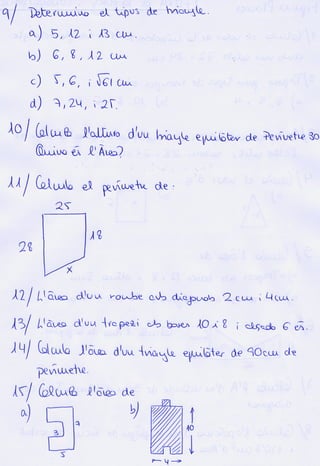 9/ Determina el tipus de triangle.
a) 5, 12 i 13 cm.
b) 6, 8, 12 cm
c) 5, 6, i √61 cm
d) 7, 24, i 25.
10/ Calcula l'altura d'un triangle equilàter de Perímetre 30
Quina és l'Àrea?
11/ Calcula el perímetre de:
25
28
18
x
12/ L'àrea d'un rombe amb diagonals 2 cm i 4 cm.
13/ L'àrea d'un trapezi amb bases 10 i 8 i alçada 6 és.
14/ Calcula l'àrea d'un triangle equilàter de 90 cm de
perímetre.
15/ Calcula l'àrea de
a)
b)
3
5
10
4